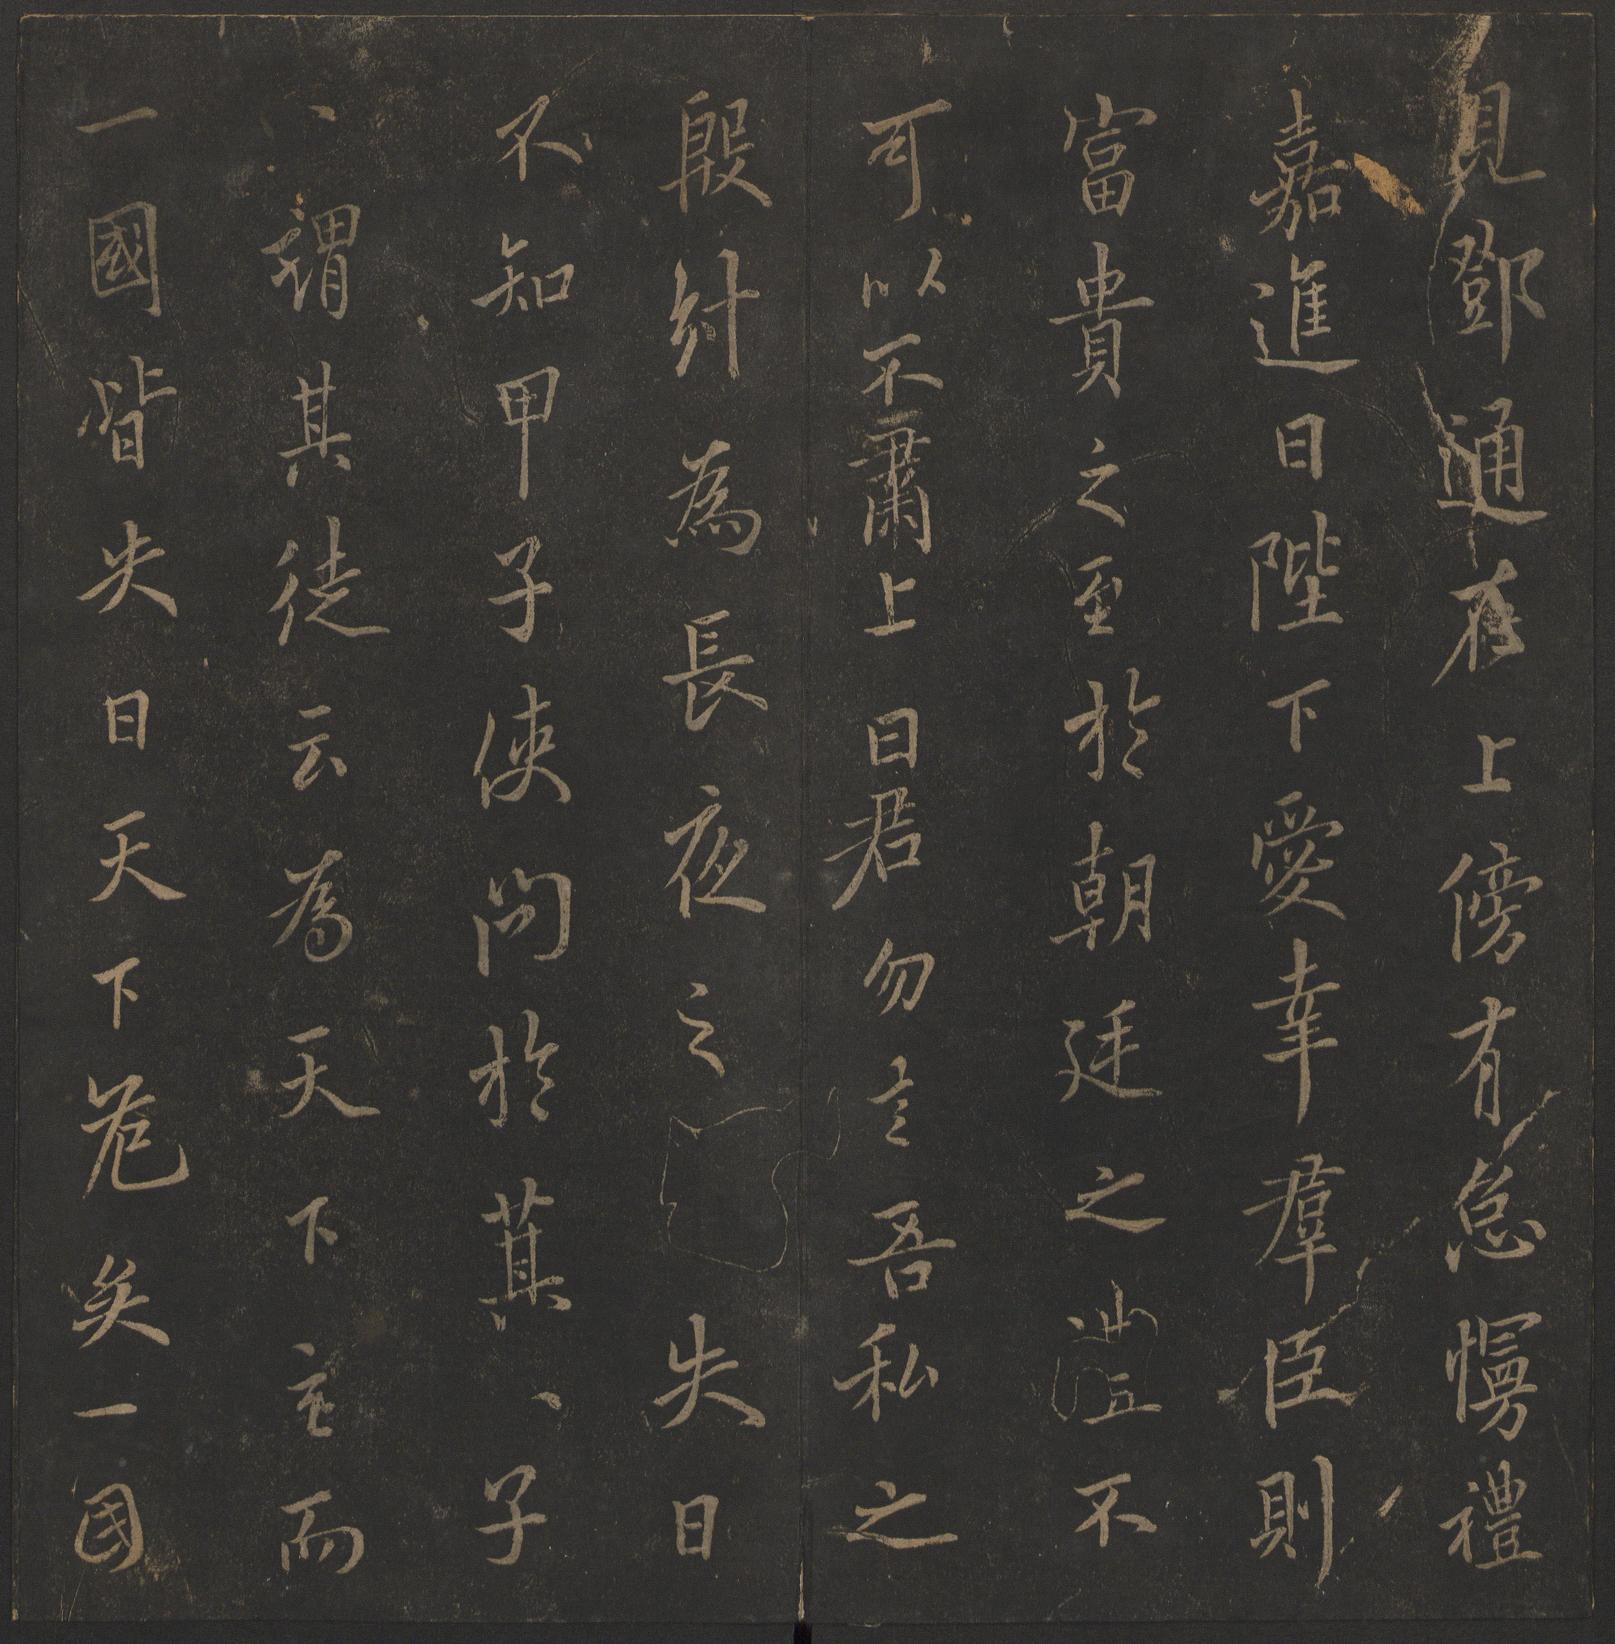 見鄧通在上傍有怠慢禮
嘉進曰陛下愛幸羣臣則
富貴之至於朝廷之禮不
可以不肅上曰君勿言吾私之
殷紂為長夜之失日
不知甲子使問於萁、子
、謂其徒云為天下主而
一國皆失日天下危矣一國